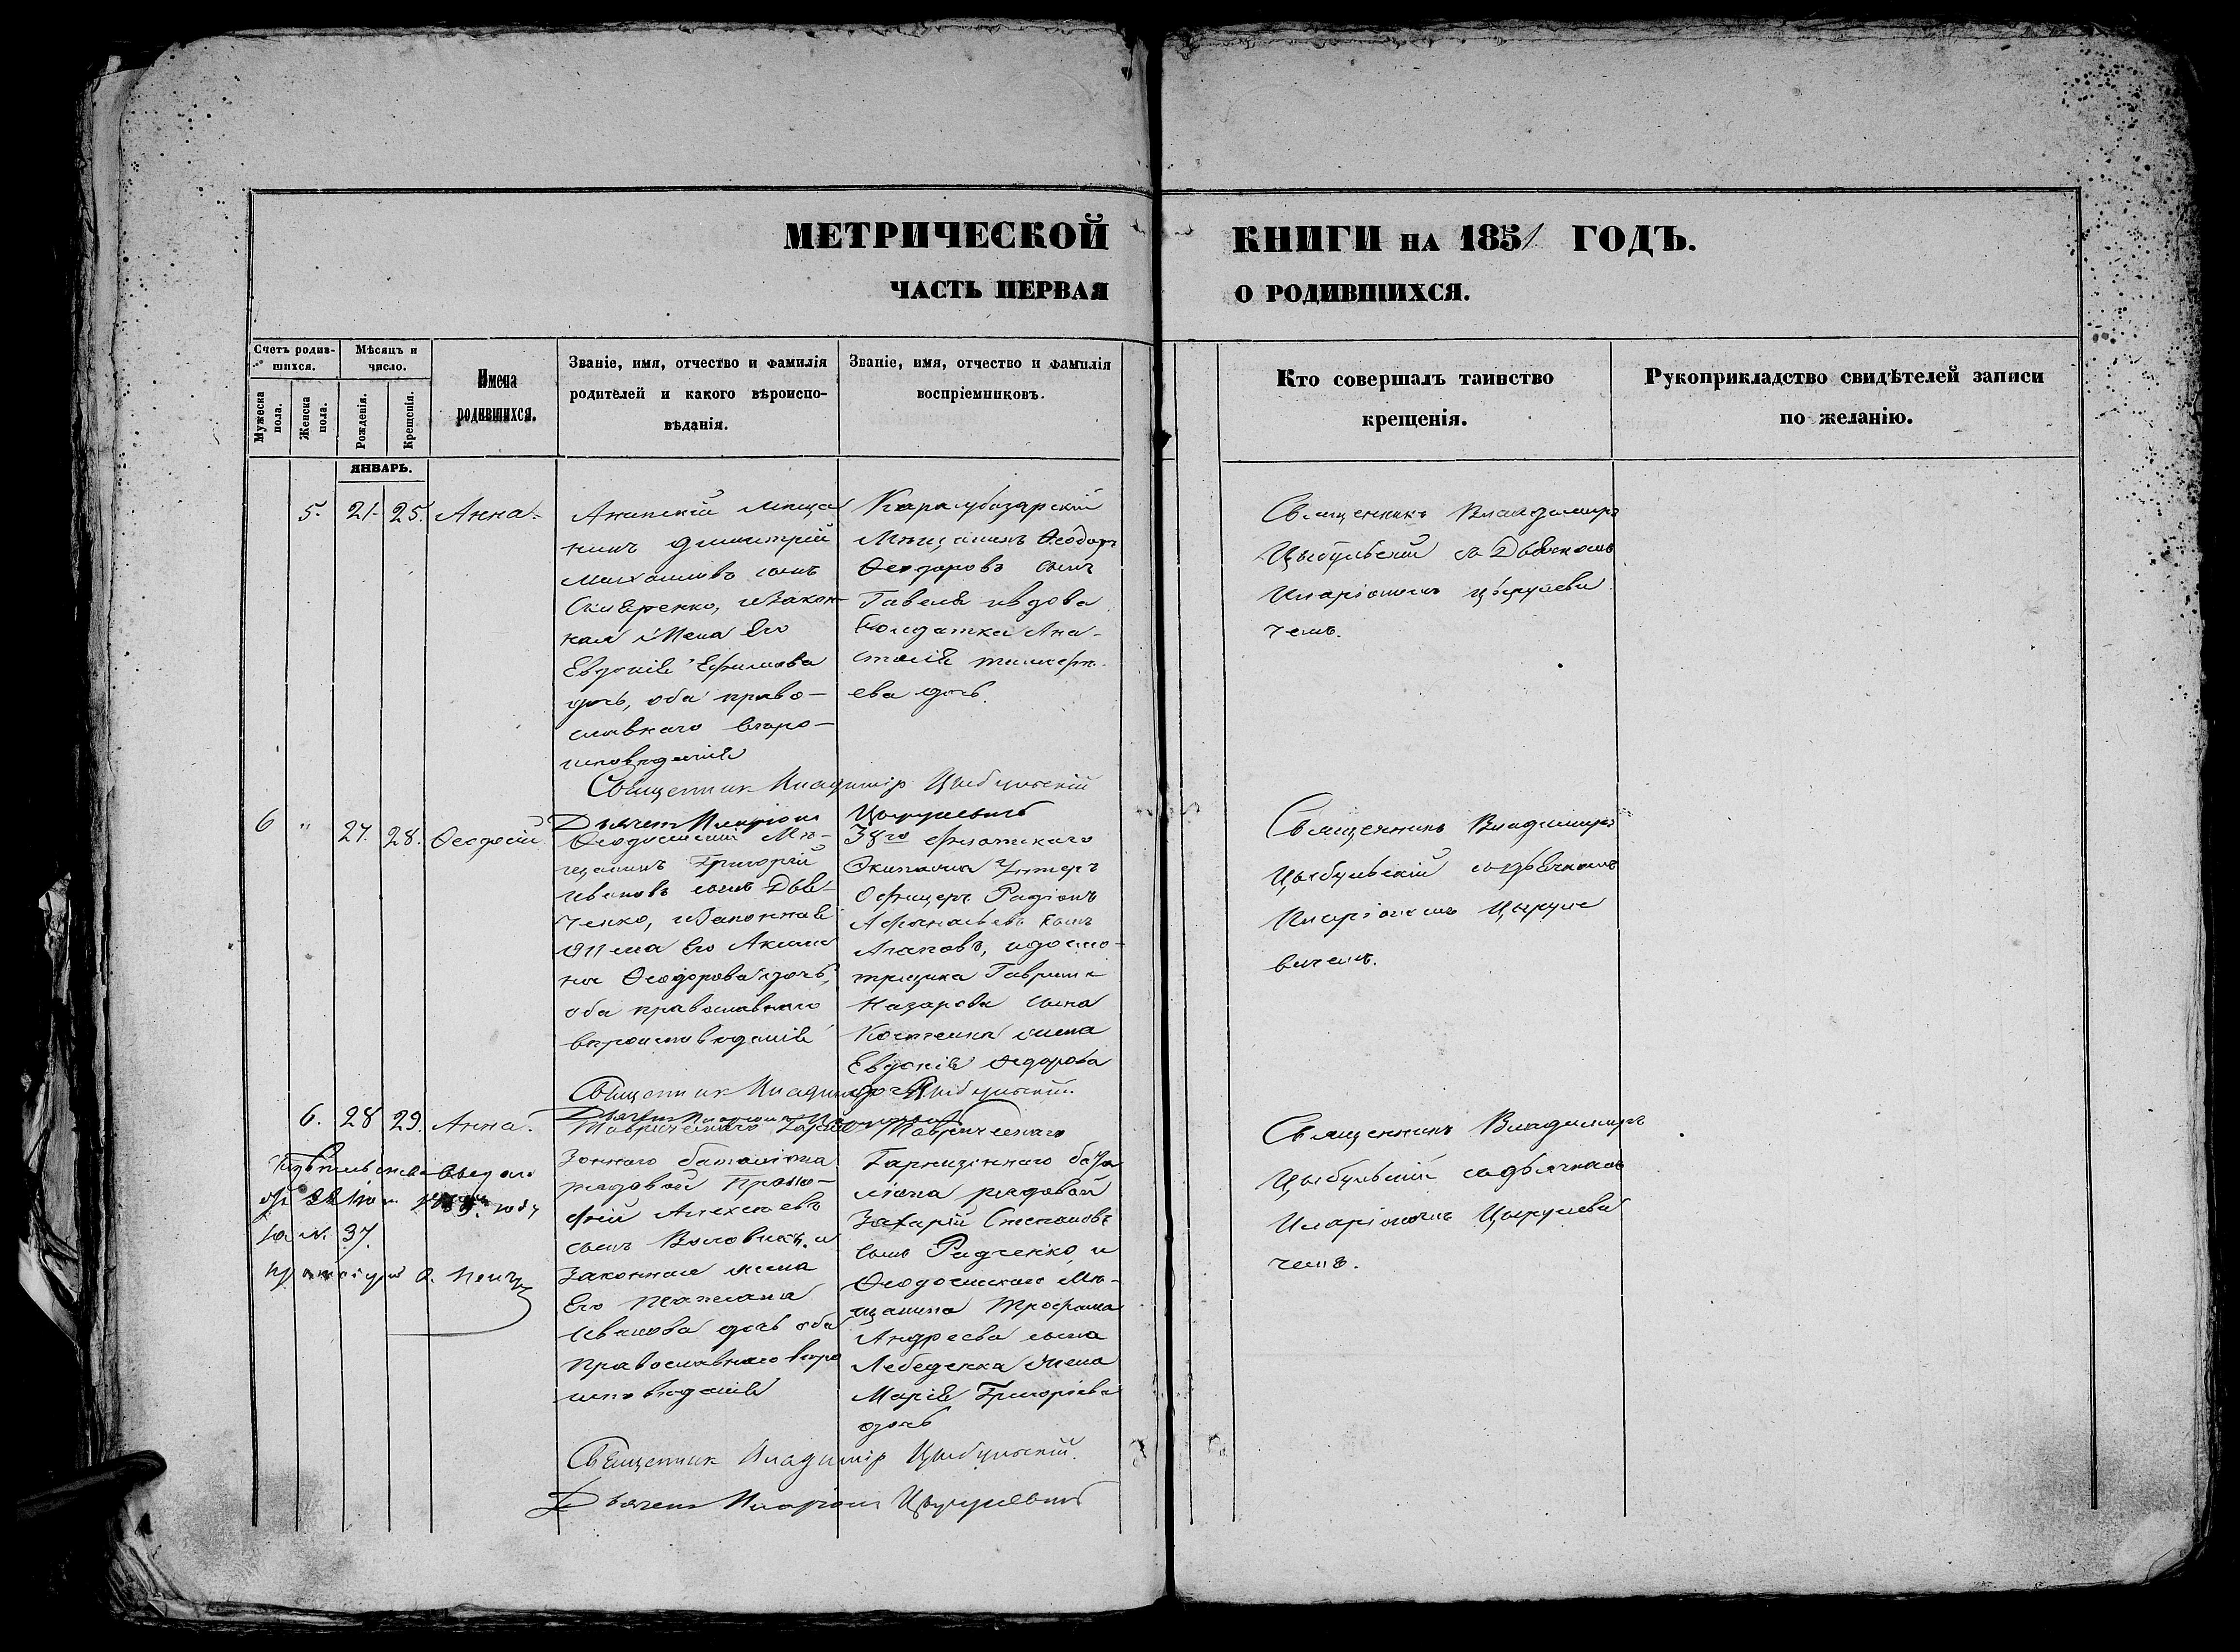 МЕТРИЧЕСКОЙ КНИГИ НА 1851 ГОДЪ.
ЧАСТЬ ПЕРВАЯ О РОДИВШИХСЯ.
Счетъ родив-
шихся.
Мужеска пола.
Женска пола.
Мѣсяцъ и
число.
Рожденія.
Крещенія.
Имена
родившихся.
Званіе, имя, отчество и фамилія
родителей и какого вѣроиспо-
вѣданія.
Званіе, имя, отчество и фамилія
воспріемниковъ.
Кто совершалъ таинство
крещенія.
Рукоприкладство свидѣтелей записи
по желанію.
ЯНВАРЬ.
5. 21. 25. Анна.
Анапскій меща
нинъ Димитрій
сынъ
Скляренко, и закон
ная жена Его
Евдокія Ефимова
дочь, оба право-
славнаго вѣро-
исповѣданія
Карасубазарскій
Мѣщанинъ Ѳеодоръ
Ѳеодоровъ сынъ
и вдова
Солдатка Ана-
стасія
ева дочь.
Священникъ Владимиръ
Цыбульскій съ Дьячкомъ
Иларіономъ Цырулеви
чемъ.
Священник Владимір Цыбульскій
Дьячекъ Иларіон Цырулевичъ
6 " 27. 28. Ѳеодосій
Ѳеодосійскій Мѣ-
щанинъ Григорій
Ивановъ сынъ Дья-
ченко, и законная
жена Его Аксинья
Ѳеодорова дочь,
оба православнаго
вѣроисповѣданія
38го флотскаго
Экипажа Унтеръ
Офицеръ Радіонъ
Афанасьевъ сынъ
Агаповъ, и досмо-
трщика Гаврила
Назарова сына
Костенка жена
Евдокія Ѳедорова
дочь
Священникъ Владимиръ
Цыбульскій съ дьячкомъ
Иларіономъ Цыруле
вичемъ.
Священник Владимір Цыбульскій.
Дьячекъ Иларіон Цырулевичъ
6. 28 29. Анна.
Таврическаго Гарни
зоннаго баталіона
рядовой Проко-
фій Алексѣевъ
сынъ и
законная жена
Его Татіана
Иванова дочь оба
Православнаго вѣро
исповѣданія
Таврическаго
Гарнизоннаго бата
ліона рядовой
Захарій Степановъ
сынъ Радченко, и
Ѳеодосійскаго Мѣ-
щанина Трофима
Андреева сына
Лебеденка жена
Марія Григоріева
дочь
Священникъ Владимиръ
Цыбульскій съ дьячкомъ
Иларіономъ Цырулеви
чемъ.
году
за № 37.
Священник Владимір Цыбульскій.
Дьячекъ Иларіон Цырулевичъ